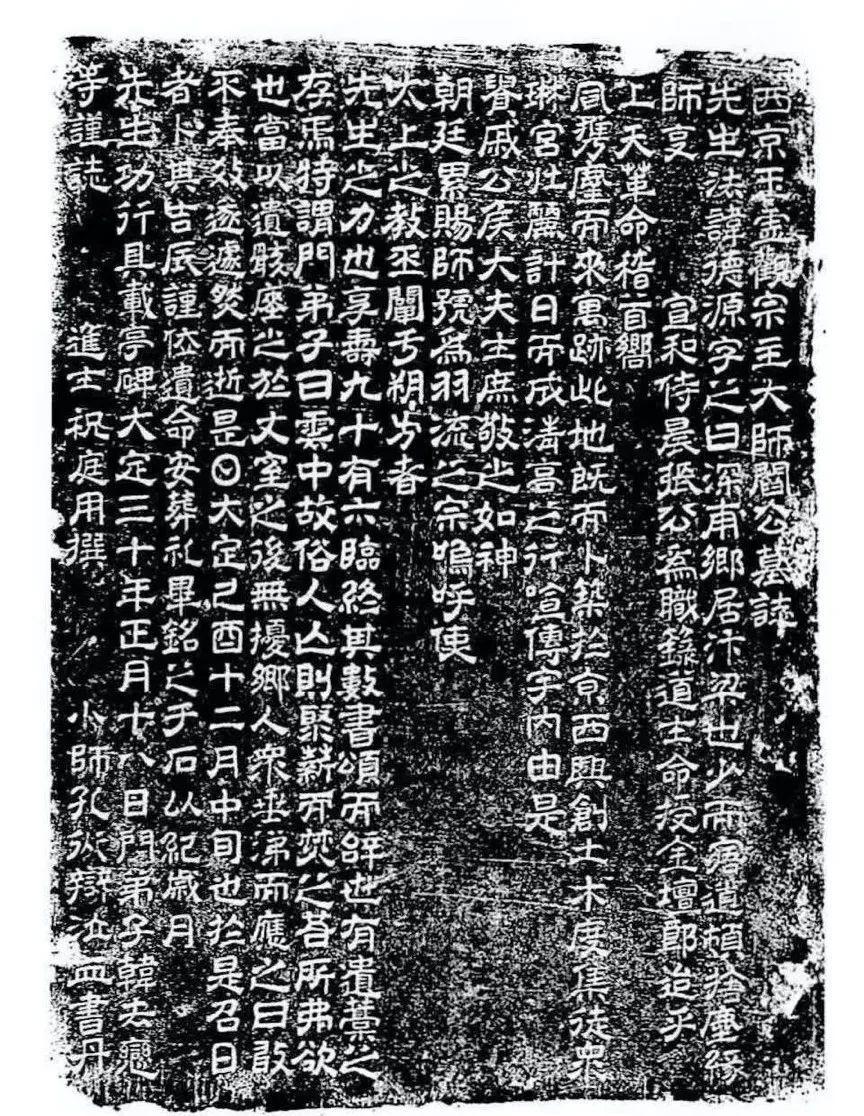 西京玉虛觀宗主大師閻公墓誌
先生法諱德源字之曰深甫鄉居汴梁也少而宗道頓捨塵緣
師事 宣和侍晨張公爲職籙道士命授金壇郎迨乎
上天革命稽首嚮
風攜塵而來寓跡此地既而卜築於京西興創土木度集徒眾
琳宮壯麗計日而成清高之行喧傳宇內由是
貴戚公侯大夫士庶敬之如神
朝廷累賜師號爲羽流之宗嗚呼使
太上之教丕闡于朔方者
先生之力也享壽九十有六臨終其數書頌而辭世有遺藁之
存焉特謂門弟子曰雲中故俗人亡則聚薪而焚之吾所弗欲
也當以遺骸瘞之於丈室之後無擾鄉人眾垂涕而應之曰敢
不奉教遂遽然而逝是日大定己酉十二月中旬也於是召日
者卜其吉辰謹依遺命安葬礼畢銘之于石以紀歲月
先生功行具載亭碑大定三十年正月十八日門弟子韓去戀
等謹誌 進士祝庭用撰 小師孔从辯泣血書丹